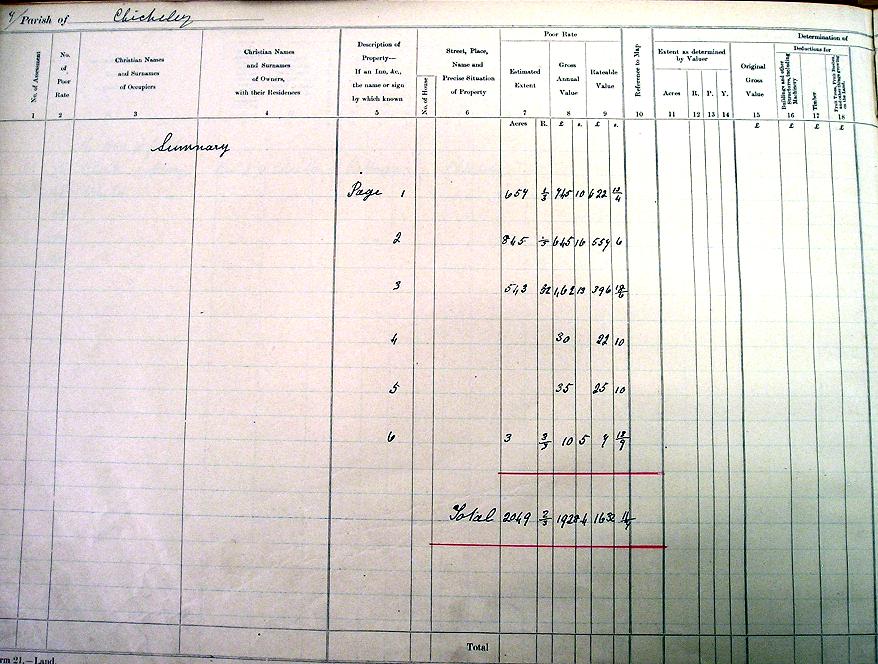 4/ Parish of Chicheley
No. of Assessment
No. of Poor Rate
Christian Names and Surnames of Occupiers
Christian Names and Surnames of Owners, with their Residences
Description of Property— If an Inn, &c., the name or sign by which known
No. of House
Street, Place, Name and Precise Situation of Property
Poor Rate
Estimated Extent
Gross Annual Value
Rateable Value
Reference to Map
Determination of
Extent as determined by Valuer
Acres R. P. Y.
Original Gross Value
Deductions for
Buildings and other Structures, including Machinery
Timber
1 2 3 4 5 6 7 8 9 10 11 12 13 14 15 16 17 18
Acres R. £ s. £ s. £ £ £ £
Summary
Page 1 657 1/3 745 10 622 13/4
2 845 645 16 557 6
3 543 462 13 396 18/6
4 30 22 10
5 35 25 10
6 3 3/3 10 5 7 18/9
Total 2049 2/3 1928 4 1632
Total
rm 21.—Land.